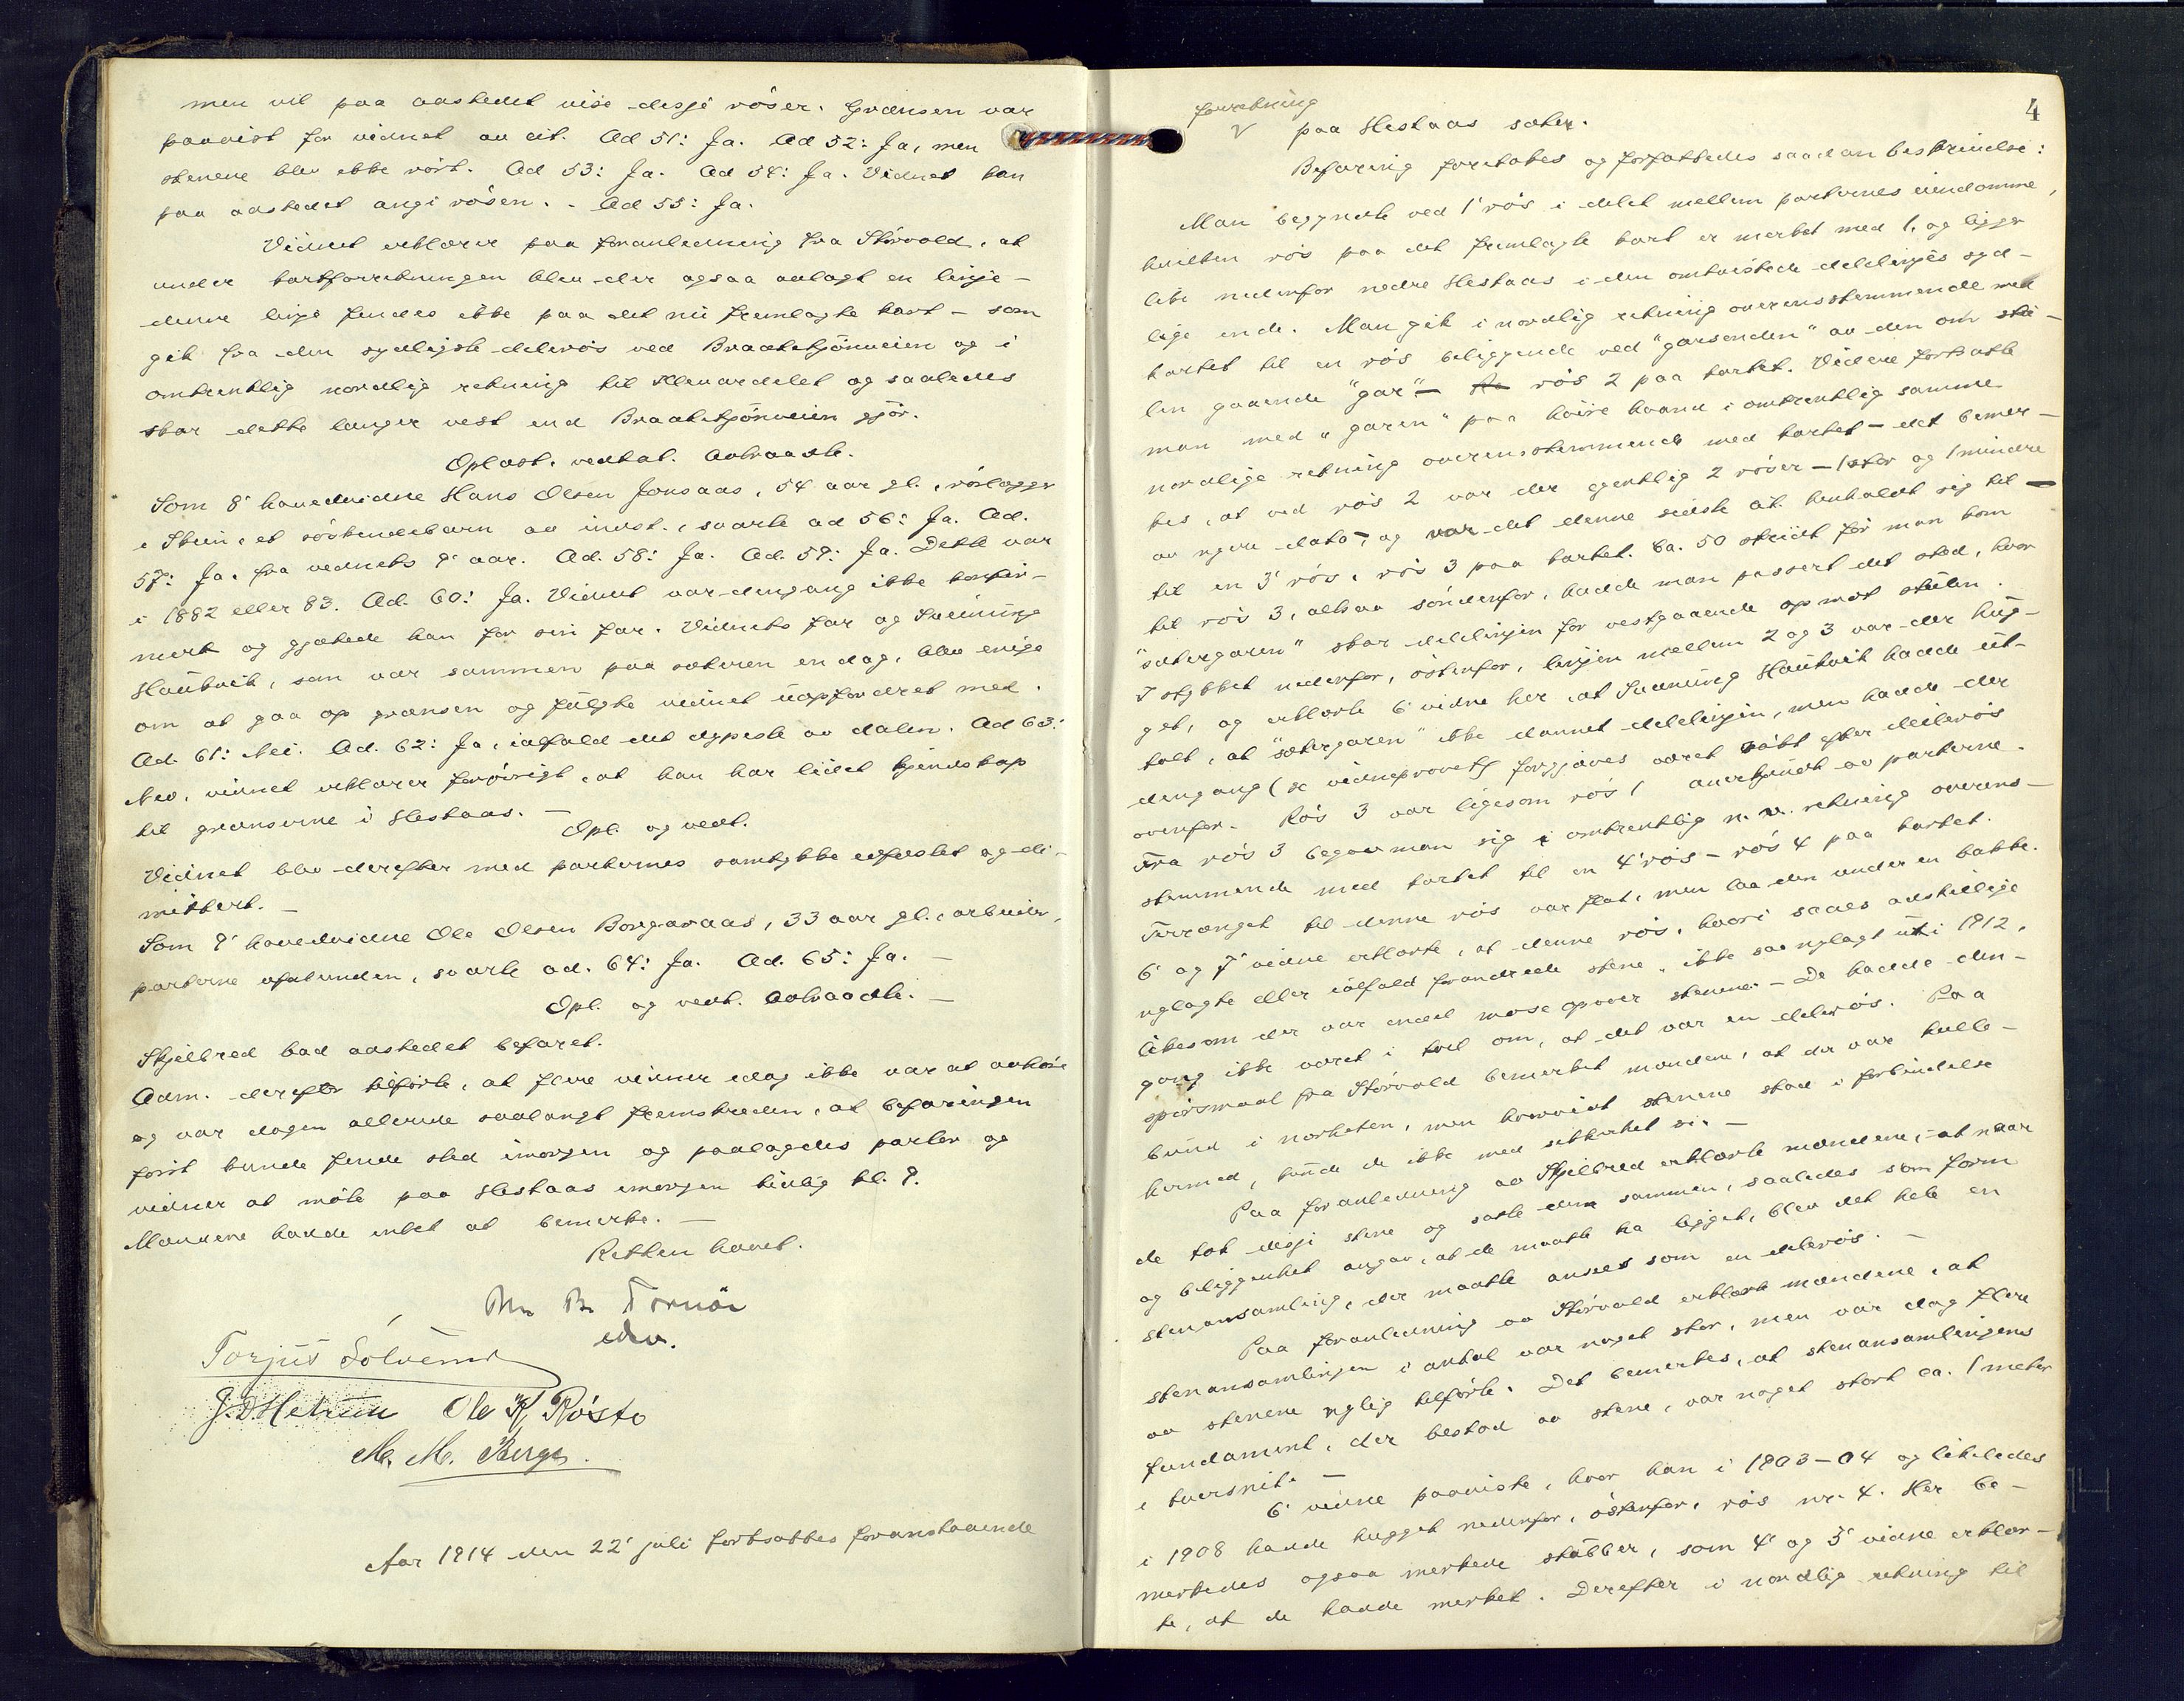 men vil paa aastedet vise disse röser. Grænsen var
paavist for vidnet av cit. Ad 51: Ja. Ad 52: Ja, men
stenene blev ikke rört. Ad 53: Ja. Ad 54: Ja. Vidnet kan
paa aastedet angi rösen. - Ad 55: Ja.
Vidnet erklærer paa foranledning fra Stórvold, at
under kartforretningen blev der ogsaa avlagt en linje -
denne linje findes ikke paa det nu fremlagte kart - som
gik fra den sydligste delerös ved Braatetjönnveien og i
omtrentlig nordlig retning til Klevardelet og saaledes
skar dette længer vest end Braatetjönveien gjör.
Oplæst. vedtat. Avtraadte.
Som 8' hovedvidne Hans Olsen Jonsaas, 54 aar gl., röslægger
i Skien, et söskendebarn av indst., svarte ad 56: Ja. Ad.
57: Ja, fra vednets 9' aar. Ad. 58: Ja. Ad. 59: Ja. Dette var
i 1882 eller 83. Ad. 60: Ja. Vidnet var dengang ikke konfir-
mert og gjætede han for sin far. Vidnets far og Sveinung
Haukvik, som var sammen paa sæteren en dag, blev enige
om at gaa op grænsen og fulgte vidnet uopfordret med.
Ad. 61: Nei. Ad. 62: Ja, ialfald det dypeste av dalen. Ad 63:
Nei, vidnet erklærer forövrigt, at han har litet kjendskap
til grænserne i Hestaas. -
Opl. og vedt.
Vidnet blev derefter med parternes samtykke edfæstet og di-
mittert. -
Som 9' hovedvidne Ole Olsen Borgaraas, 33 aar gl., arbeider,
parterne ubeslunden, svarte ad. 64: Ja. Ad. 65: Ja. -
Opl. og vedt. Avtraadte. -
Skjelbred bad aastedet befaret.
Adm. derefter tilförte, at flere vidner idag ikke var at avhöre
og var dagen allerede saalangt fremskreden, at befaringen
först kunde finde sted imorgen og paalagdes parter og
vidner at möte paa Hestaas imorgen tidlig kl. 9.
Mændene hadde intet at bemerke. -
Retten hævet.
Torjus Sölvesen
Ole K Röste
M. M. Berge.
Aar 1914 den 22' juli fortsattes foranstaaende
4
forretning
v paa Hestaas sæter.
Befaring foretokes og forfattedes saadan beskrivelse:
Man begyndte ved 1' rös i delet mellem parternes eiendomme,
hvilken rös paa det fremlagte kart er merket med 1, og ligger
like nedenfor nedre Hestaas i den omtvistede delelinjes syd-
lige ende. Man gik i nordlig retning overensstemmende med
kartet til en rös beliggende ved "garsenden" av den om stö-
len gaaende "gar" - rös 2 paa kartet. Videre fortsatte
man med "garen" paa höire haand i omtrentlig samme
nordlige retning overensstemmende med kartet - det bemer-
kes, at ved rös 2 var der egentlig 2 röser - 1 stor og 1 mindre
av nyere dato -, og var det denne sidste cit. henholdt sig til -
til en 3' rös, rös 3 paa kartet. Ca. 50 skridt för man kom
til rös 3, altsaa söndenfor, hadde man passert det sted, hvor
"sætergaren" skar delelinjen for vestgaaende op mot stölen.
I stykket nedenfor, östenfor, linjen mellem 2 og 3 var der hug-
get, og erklærte 6' vidne her, at Sveinung Haukvik hadde ut-
talt, at "sætergaren" ikke dannet delelinjen, men hadde der
dengang (se vidneprovet) forgjæves været sökt efter delerös
ovenfor. Rös 3 var ligesom rös 1 anerkjendt av parterne.
Fra rös 3 begav man sig i omtrentlig n.v. retning overens-
stemmende med kartet til en 4' rös - rös 4 paa kartet.
Terrænget til denne rös var flat, men laa den under en bakke.
6' og 7' vidne erklærte, at denne rös, hvori saaes adskillige
nylagte eller ialfald forandrede stene, ikke saa nylagt ut i 1912,
likesom der var endel mose opover stenene. - De hadde den-
gang ikke været i tvil om, at det var en delerös. Paa
spörsmaal fra Stórvold bemerket mændene, at der var kulle-
bund i nærheten, men hvorvidt stenene stod i forbindelse
hermed, kunde de ikke med sikkerhet si. -
Paa foranledning av Skjelbred erklærte mændene, at naar
de tok disse stene og satte dem sammen, saaledes som form
og beliggenhet angav, at de maatte ha ligget, blev det hele en
stenansamling, der maatte ansees som en delerös. -
Paa foranledning av Stórvold erklærte mændene, at
stenansamlingen i antal var noget stor, men var dog flere
av stenene nylig tilförte. Det bemerkes, at stenansamlingens
fundament, der bestod av stene, var noget stort ca. 1 meter
i tversnit. -
6' vidne paaviste, hvor han i 1903-04 og likeledes
i 1908 hadde hugget nedenfor, östenfor, rös nr. 4. Her be-
merkedes ogsaa merkede stubber, som 4' og 5' vidne erklær-
te, at de hadde merket. Derefter i nordlig retning til